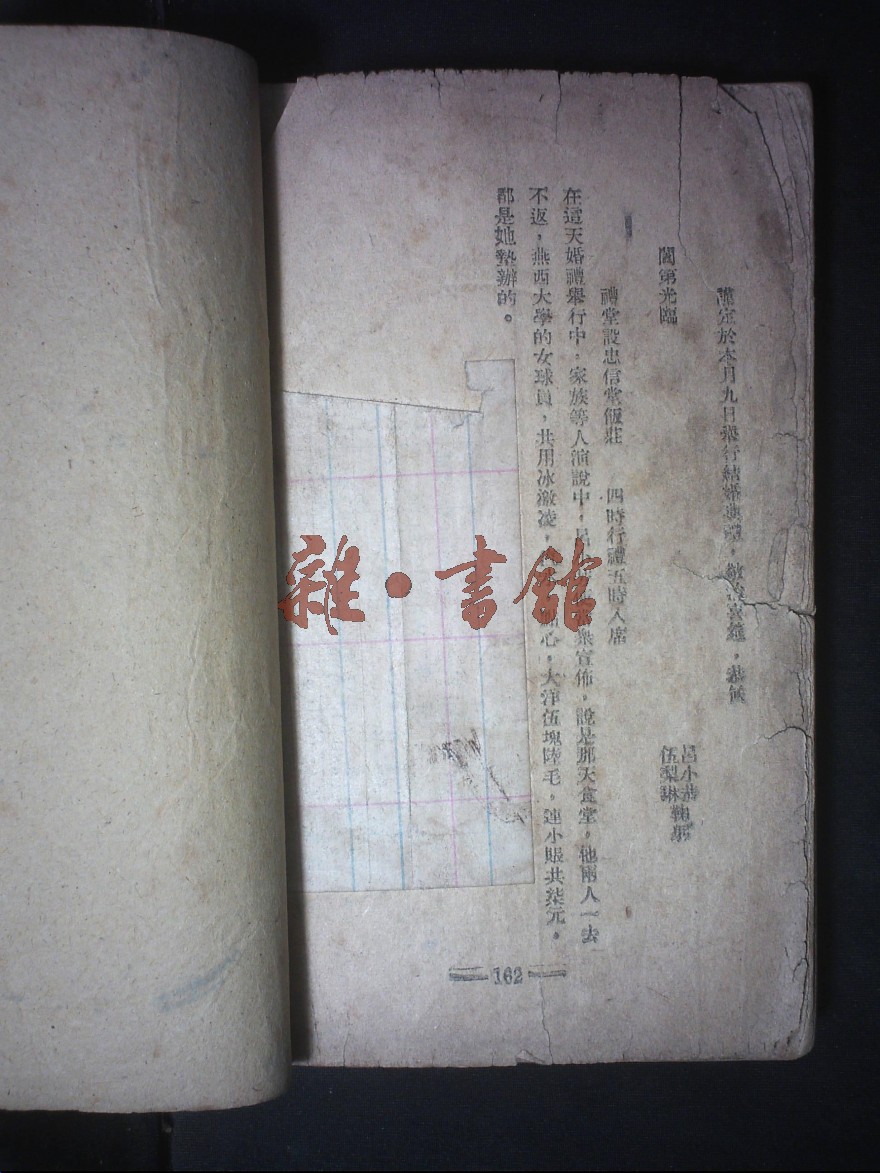 謹定於本月九日舉行結婚典禮，敬 喜 ，恭候
闔第光臨
呂小 鞠躬
伍梨琳
禮堂設忠信堂飯莊 四時行禮五時入席
在這天婚禮舉行中，家族等人演說中，呂 衆宣佈，說是那天食堂，他兩人一去
不返，燕西大學的女球員，共用冰激凌， 心，大洋伍塊陸毛，連小賬共柒元。
都是她墊辦的。
162
雜·書館